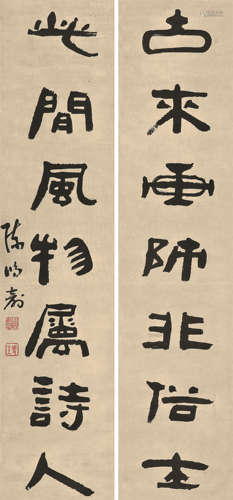 古來畫師非俗士
此閒風物屬詩人
陳鴻壽